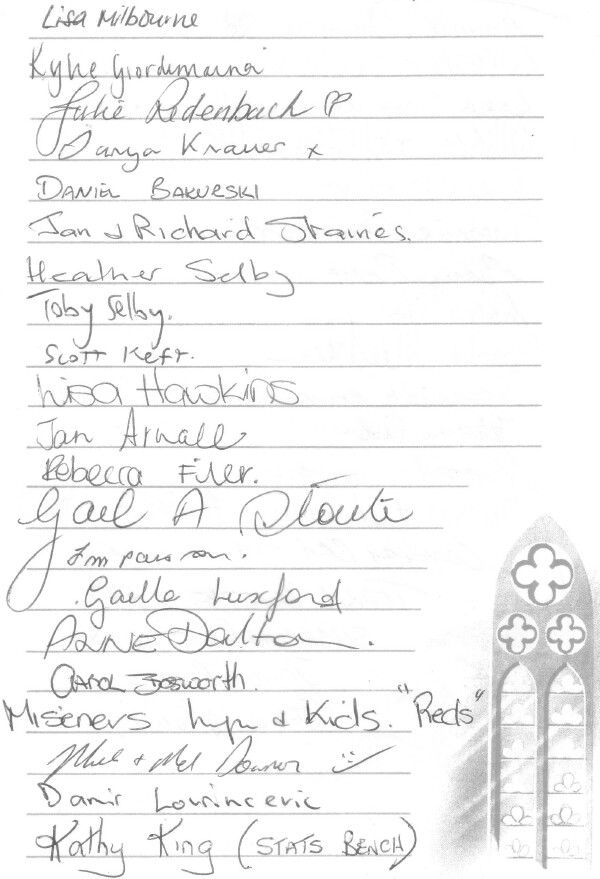 Lisa Milbourne
Kylie Giordimaina
Julie Redenbach
Tanya Krauer x
DANIEL BAKVESKI
Jan & Richard Staines.
Heather Selby
Toby Selby.
Scott Keft.
Lisa Hawkins
Jan Arnall
Rebecca Filer.
Gael A Stoute
Gaelle Luxford
ANNE Dalton.
CAROL BOSWORTH.
Miseners & Kids. "Reds"
& Mel
Damir Lovrincevic
Kathy King (STATS BENCH)